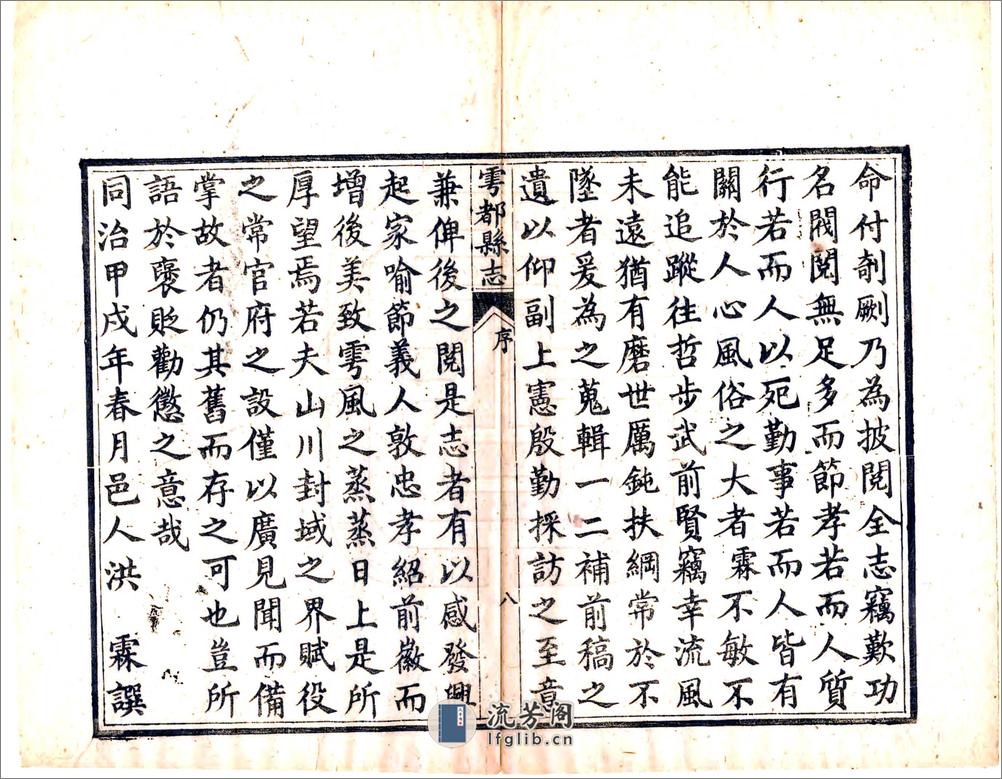 命付剞劂乃為披閱全志竊歎功
名閥閱無足多而節孝若而人質
行若而人以死勤事若而人皆有
關於人心風俗之大者霖不敏不
能追蹤往哲步武前賢竊幸流風
未遠猶有磨世厲鈍扶綱常於不
墜者爰為之蒐輯一二補前稿之
遺以仰副上憲殷勤採訪之至意
雩都縣志
序
八
兼俾後之閱是志者有以感發興
起家喻節義人敦忠孝紹前徽而
增後美致雩風之蒸蒸日上是所
厚望焉若夫山川封域之界賦役
之常官府之設僅以廣見聞而備
掌故者仍其舊而存之可也豈所
語於褒貶勸懲之意哉
同治甲戌年春月邑人洪霖譔
流芳阁
lfglib.cn